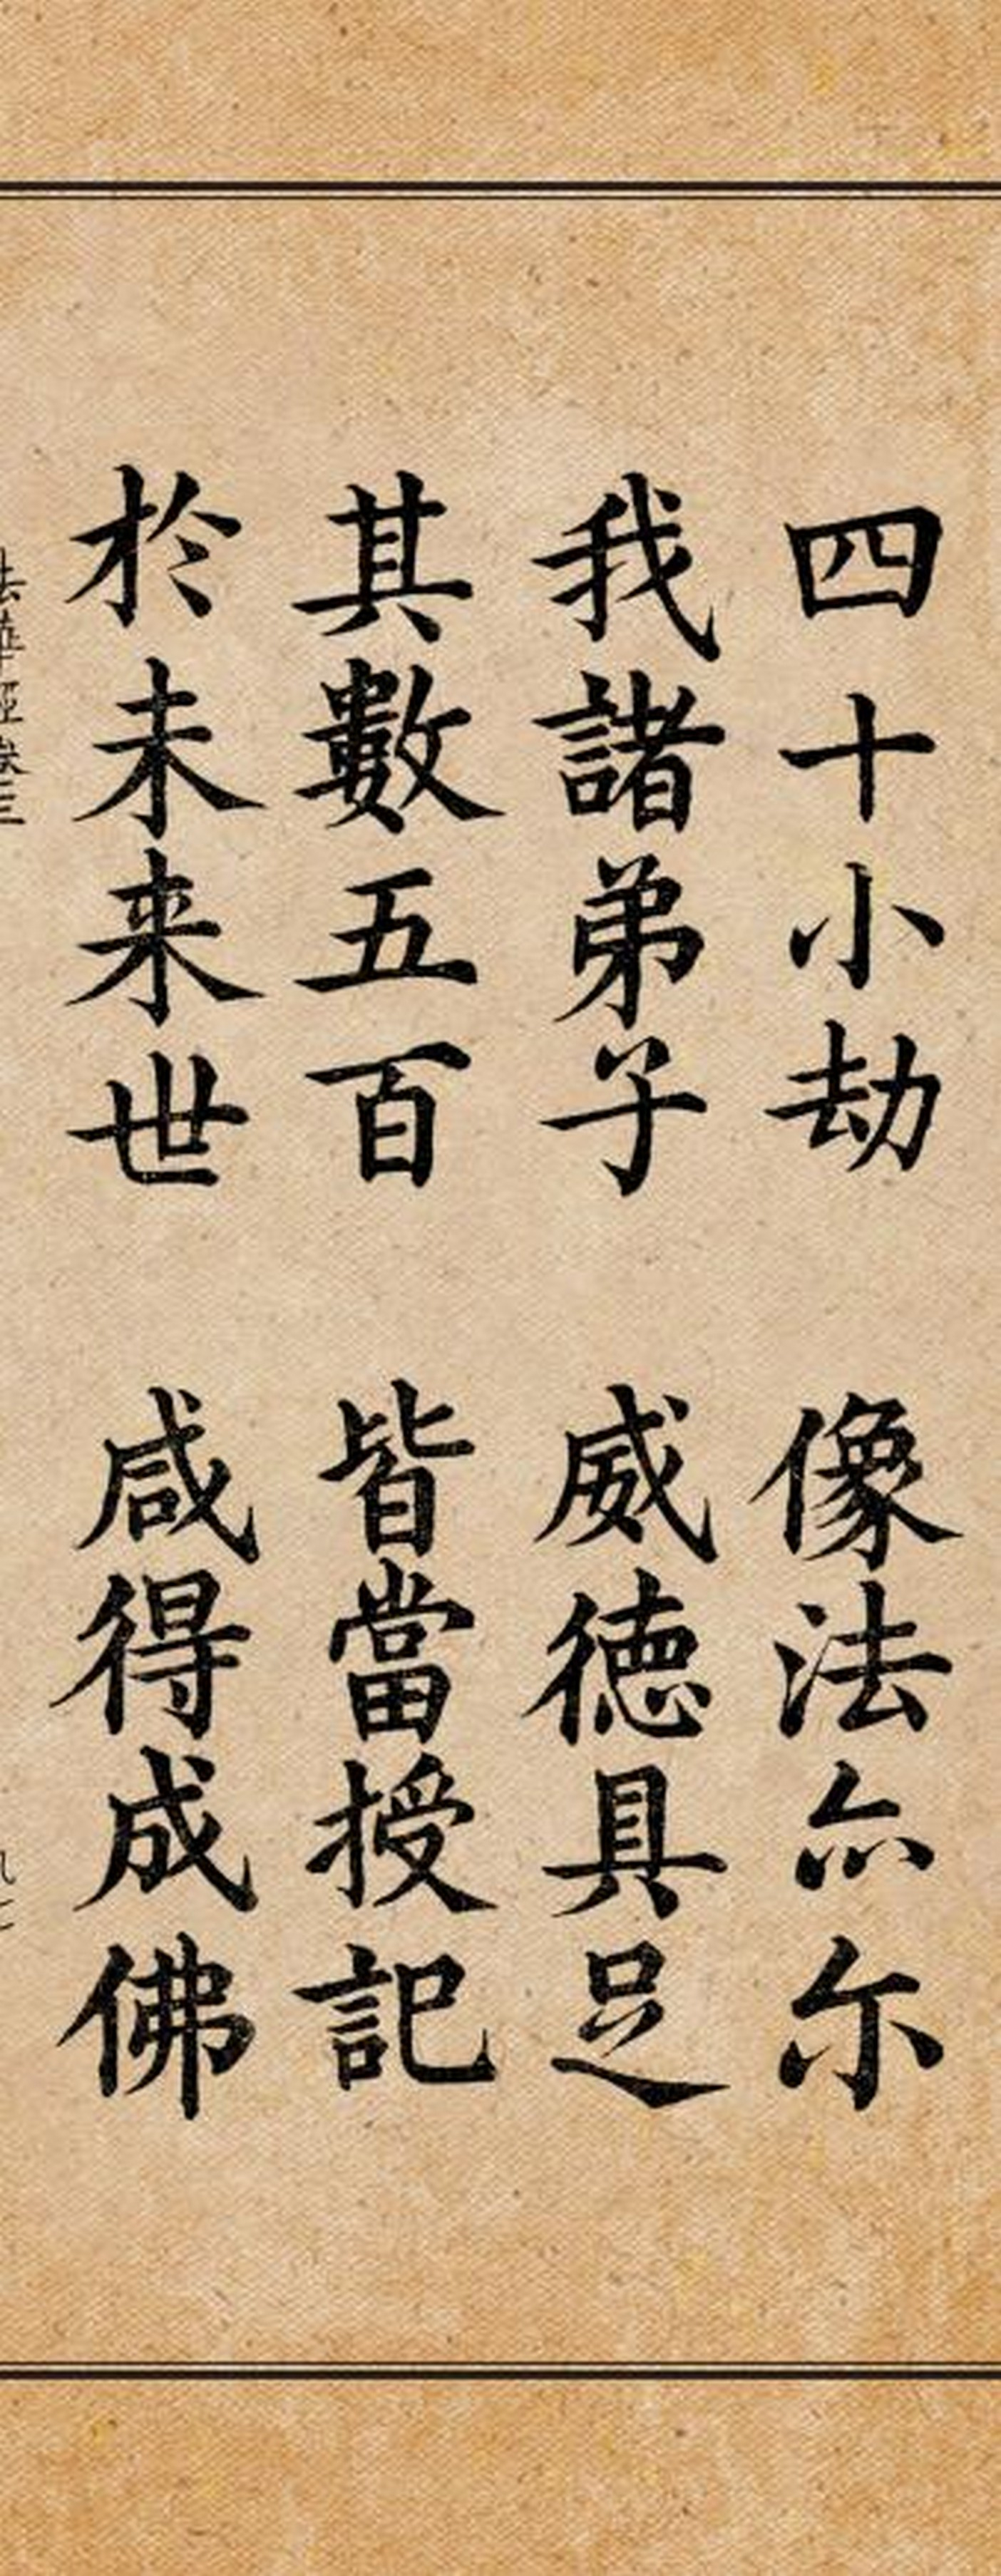 四十小劫 像法亦尓
我諸弟子 威徳具足
其數五百 皆當授記
於未来世 咸得成佛
法華經卷三